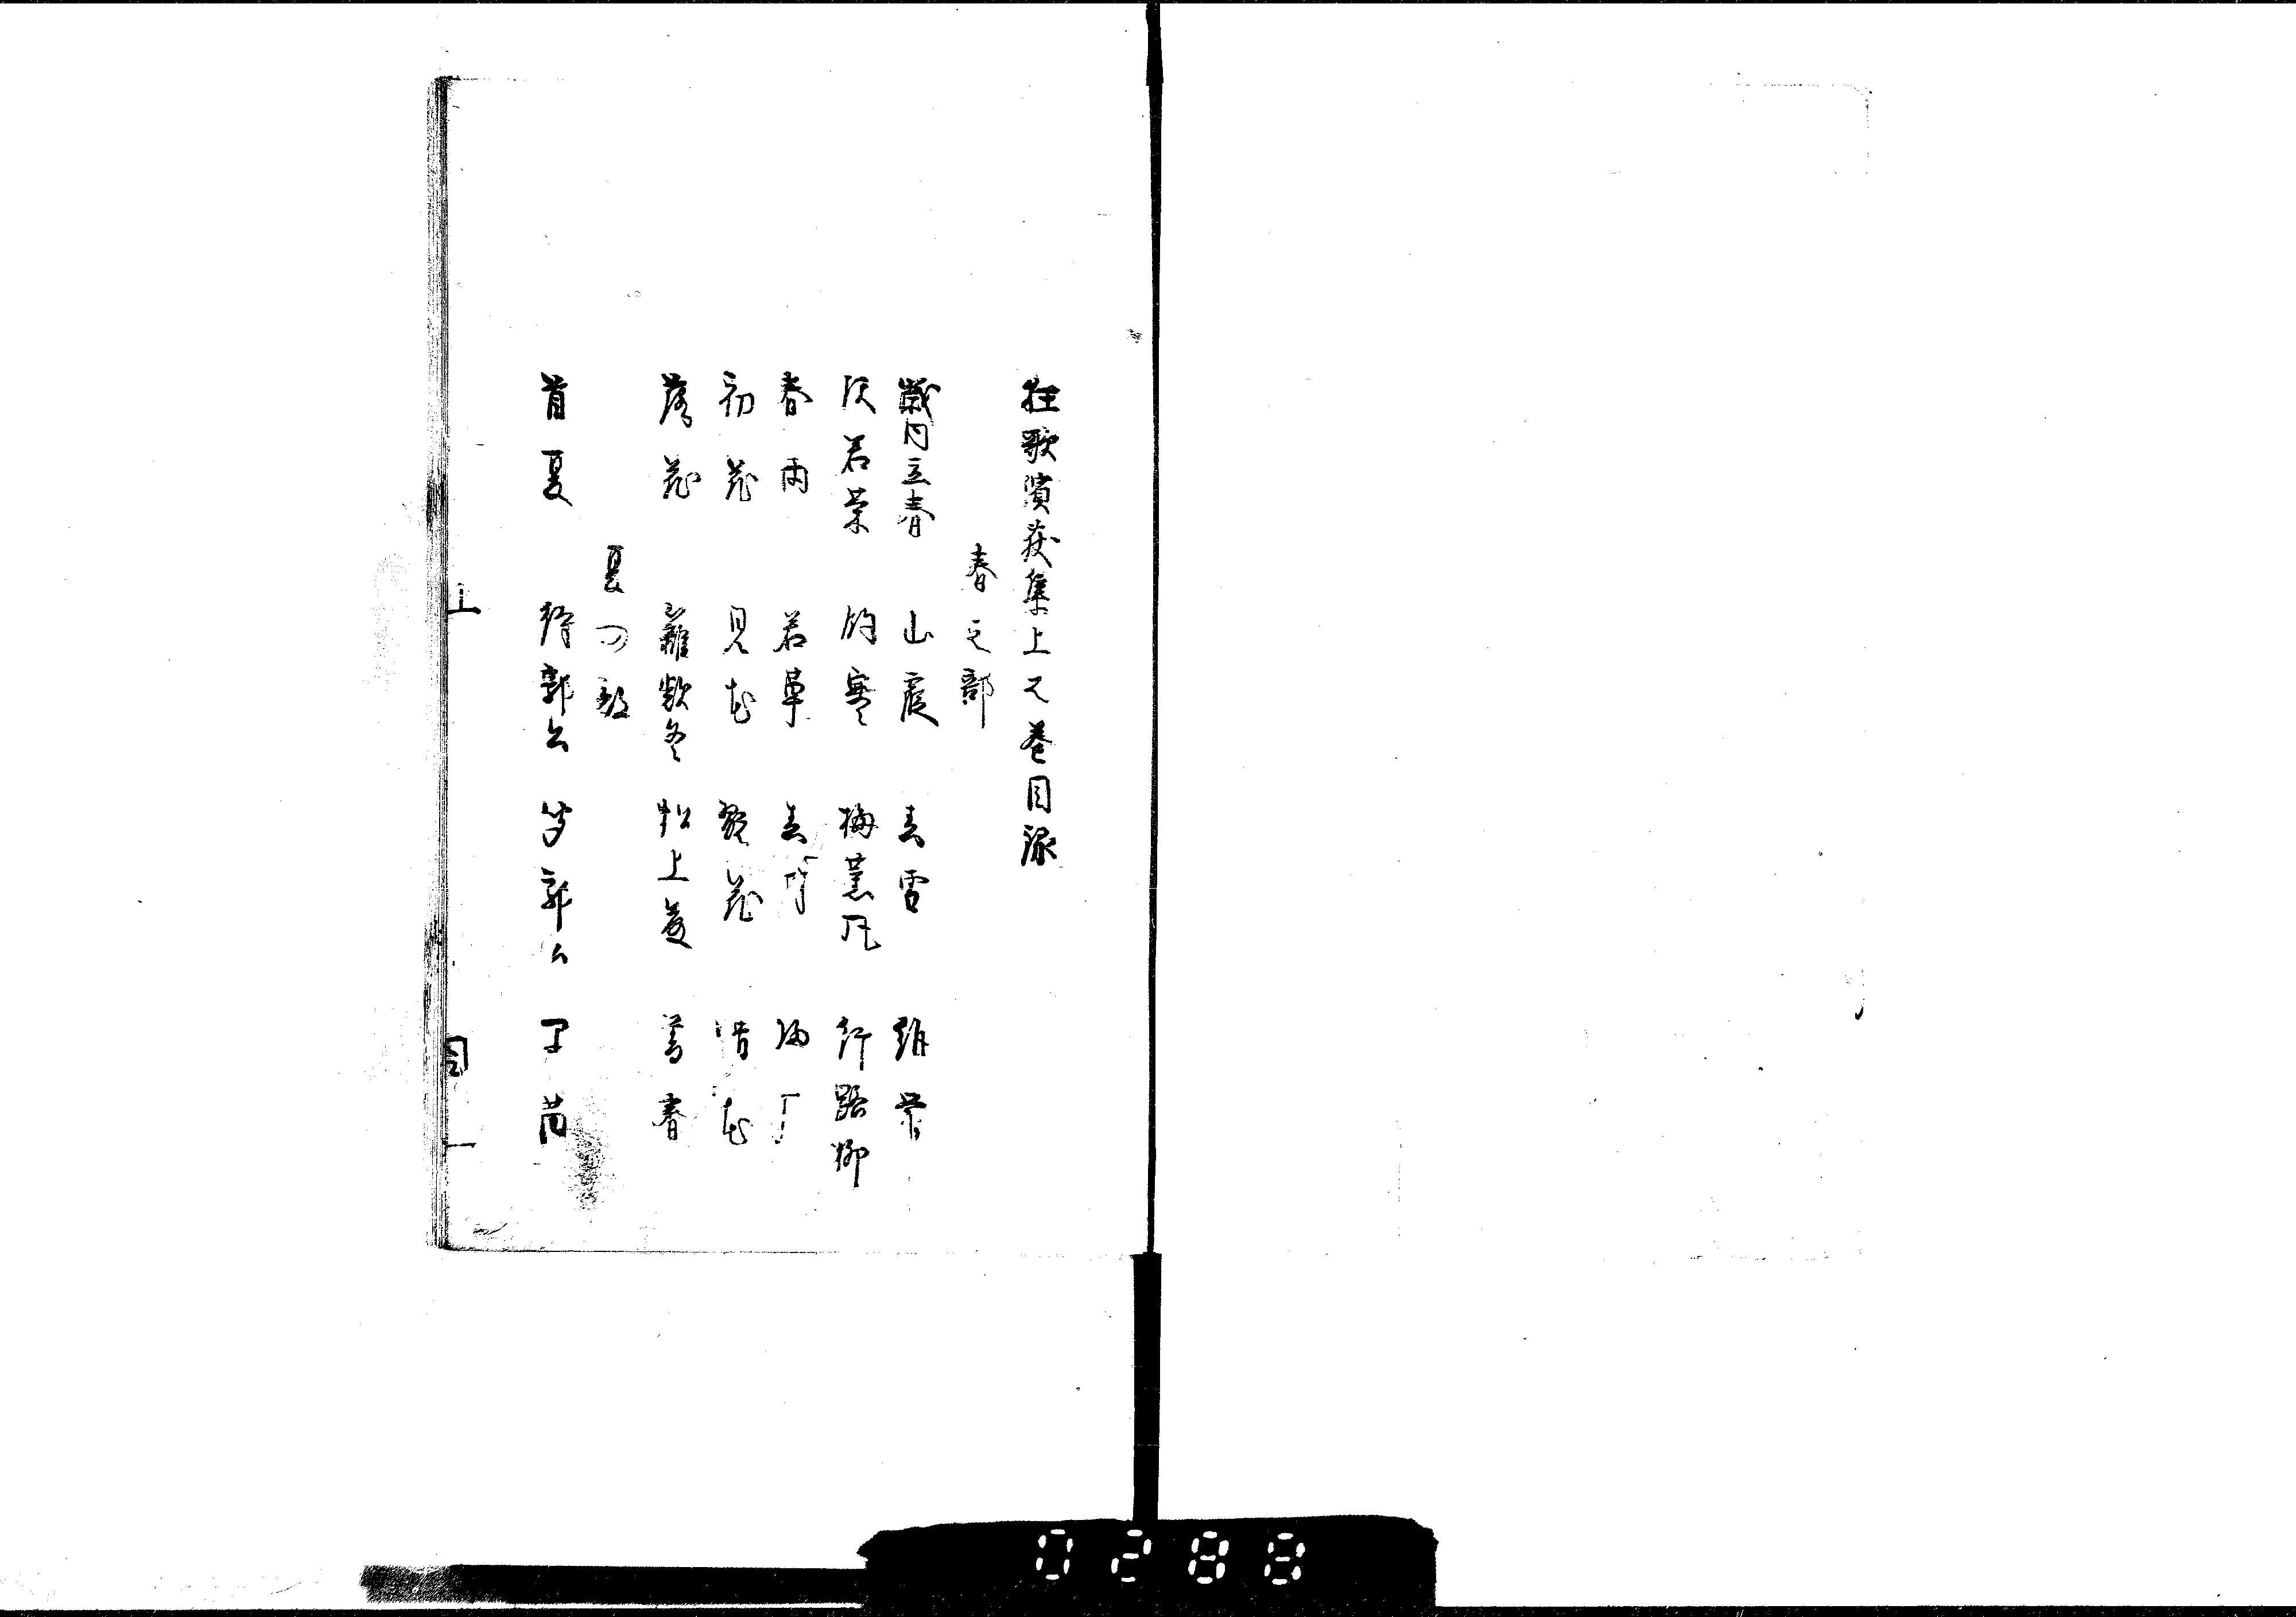 狂歌濱荻集上之巻目録
春之部
歳内立春 山霞 春雪 鶯
沢若菜 余寒 梅薫風 行路柳
春雨 若草 春月 帰厂
初花 見花 翫花 惜花
落花 籬欵冬 松上藤 暮春
夏の部
首夏 待郭公 郭公 早苗
上
目
一
0288